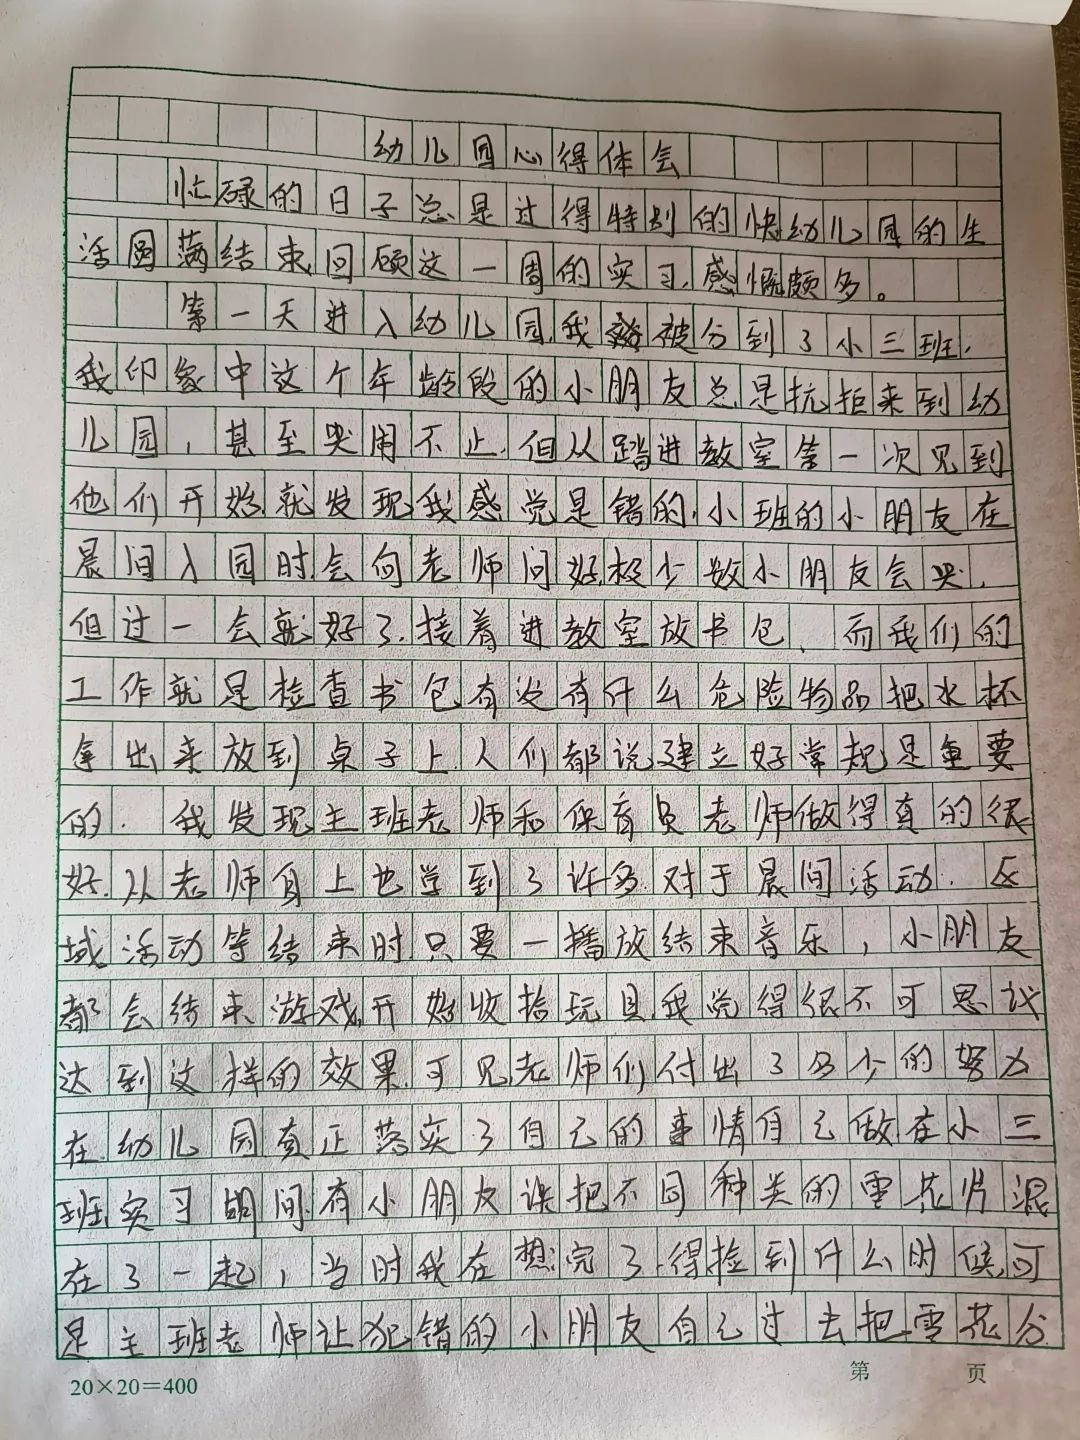 幼儿园心得体会
忙碌的日子总是过得特别的快,幼儿园的生
活圆满结束,回顾这一周的实习,感慨颇多。
第一天进入幼儿园,我被分到了小三班,
我印象中这个年龄段的小朋友总是抗拒来到幼
儿园,甚至哭闹不止,但从踏进教室第一次见到
他们开始就发现我感觉是错的,小班的小朋友在
晨间入园时,会向老师问好,极少数小朋友会哭,
但过一会就好了,接着进教室放书包,而我们的
工作就是检查书包有没有什么危险物品把水杯
拿出来放到桌子上,人们都说,建立好常规是重要
的,我发现主班老师和保育员老师做得真的很
好,从老师身上也学到了许多.对于晨间活动,区
域活动等结束时,只要一播放结束音乐,小朋友
都会结束游戏,开始收拾玩具,我觉得很不可思议
达到这样的效果,可见老师们付出了多少的努力
在幼儿园真正落实了自己的事情自己做,在小三
班实习期间,有小朋友误把不同种类的雪花片混
在了一起,当时我在想:完了,得捡到什么时候,可
是主班老师让犯错的小朋友自己过去把雪花分
20×20=400
第 页